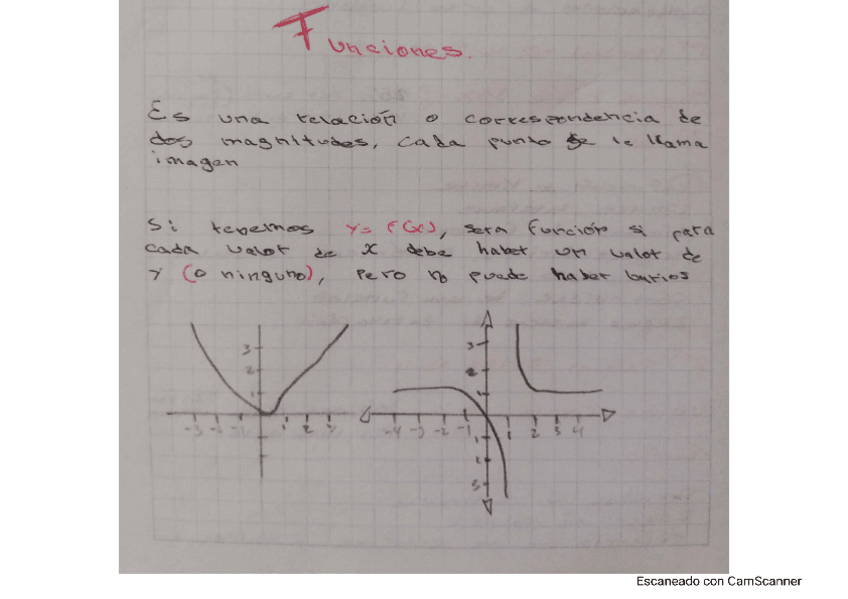 Funciones.
Es una relación o correspondencia de
dos magnitudes, cada punto se le llama
imagen
Si tenemos y= f(x), sera función si para
cada valor de x debe haber un valor de
y (o ninguno), pero no puede haber barios
3
2
1
-3 -2 -1 1 2 3
3
2
1
-4 -3 -2 -1 1 2 3 4
1
2
3
Escaneado con CamScanner